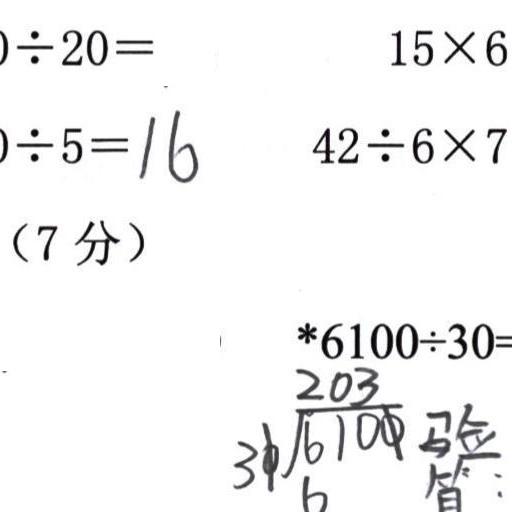 0÷20=
15×6
0÷5=16
42÷6×7
（7 分）
*6100÷30=
203
30 6100
6
验
算：